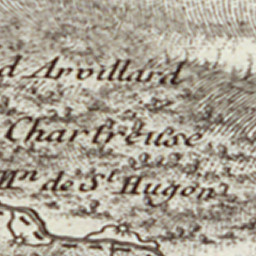 d Arvillard
Chartreuse
de St Hugon